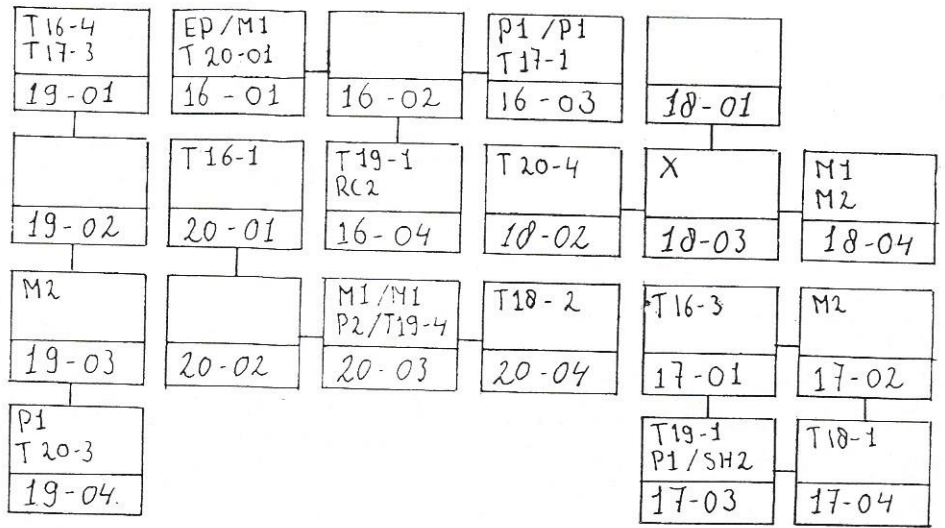 T16-4
T17-3
19-01
EP/M1
T20-01
16-01
16-02
P1/P1
T17-1
16-03
18-01
19-02
T16-1
20-01
T19-1
RC2
16-04
T20-4
18-02
X
18-03
M1
M2
18-04
M2
19-03
20-02
M1/M1
P2/T19-4
20-03
T18-2
20-04
T16-3
17-01
M2
17-02
P1
T20-3
19-04.
T19-1
P1/SH2
17-03
T18-1
17-04